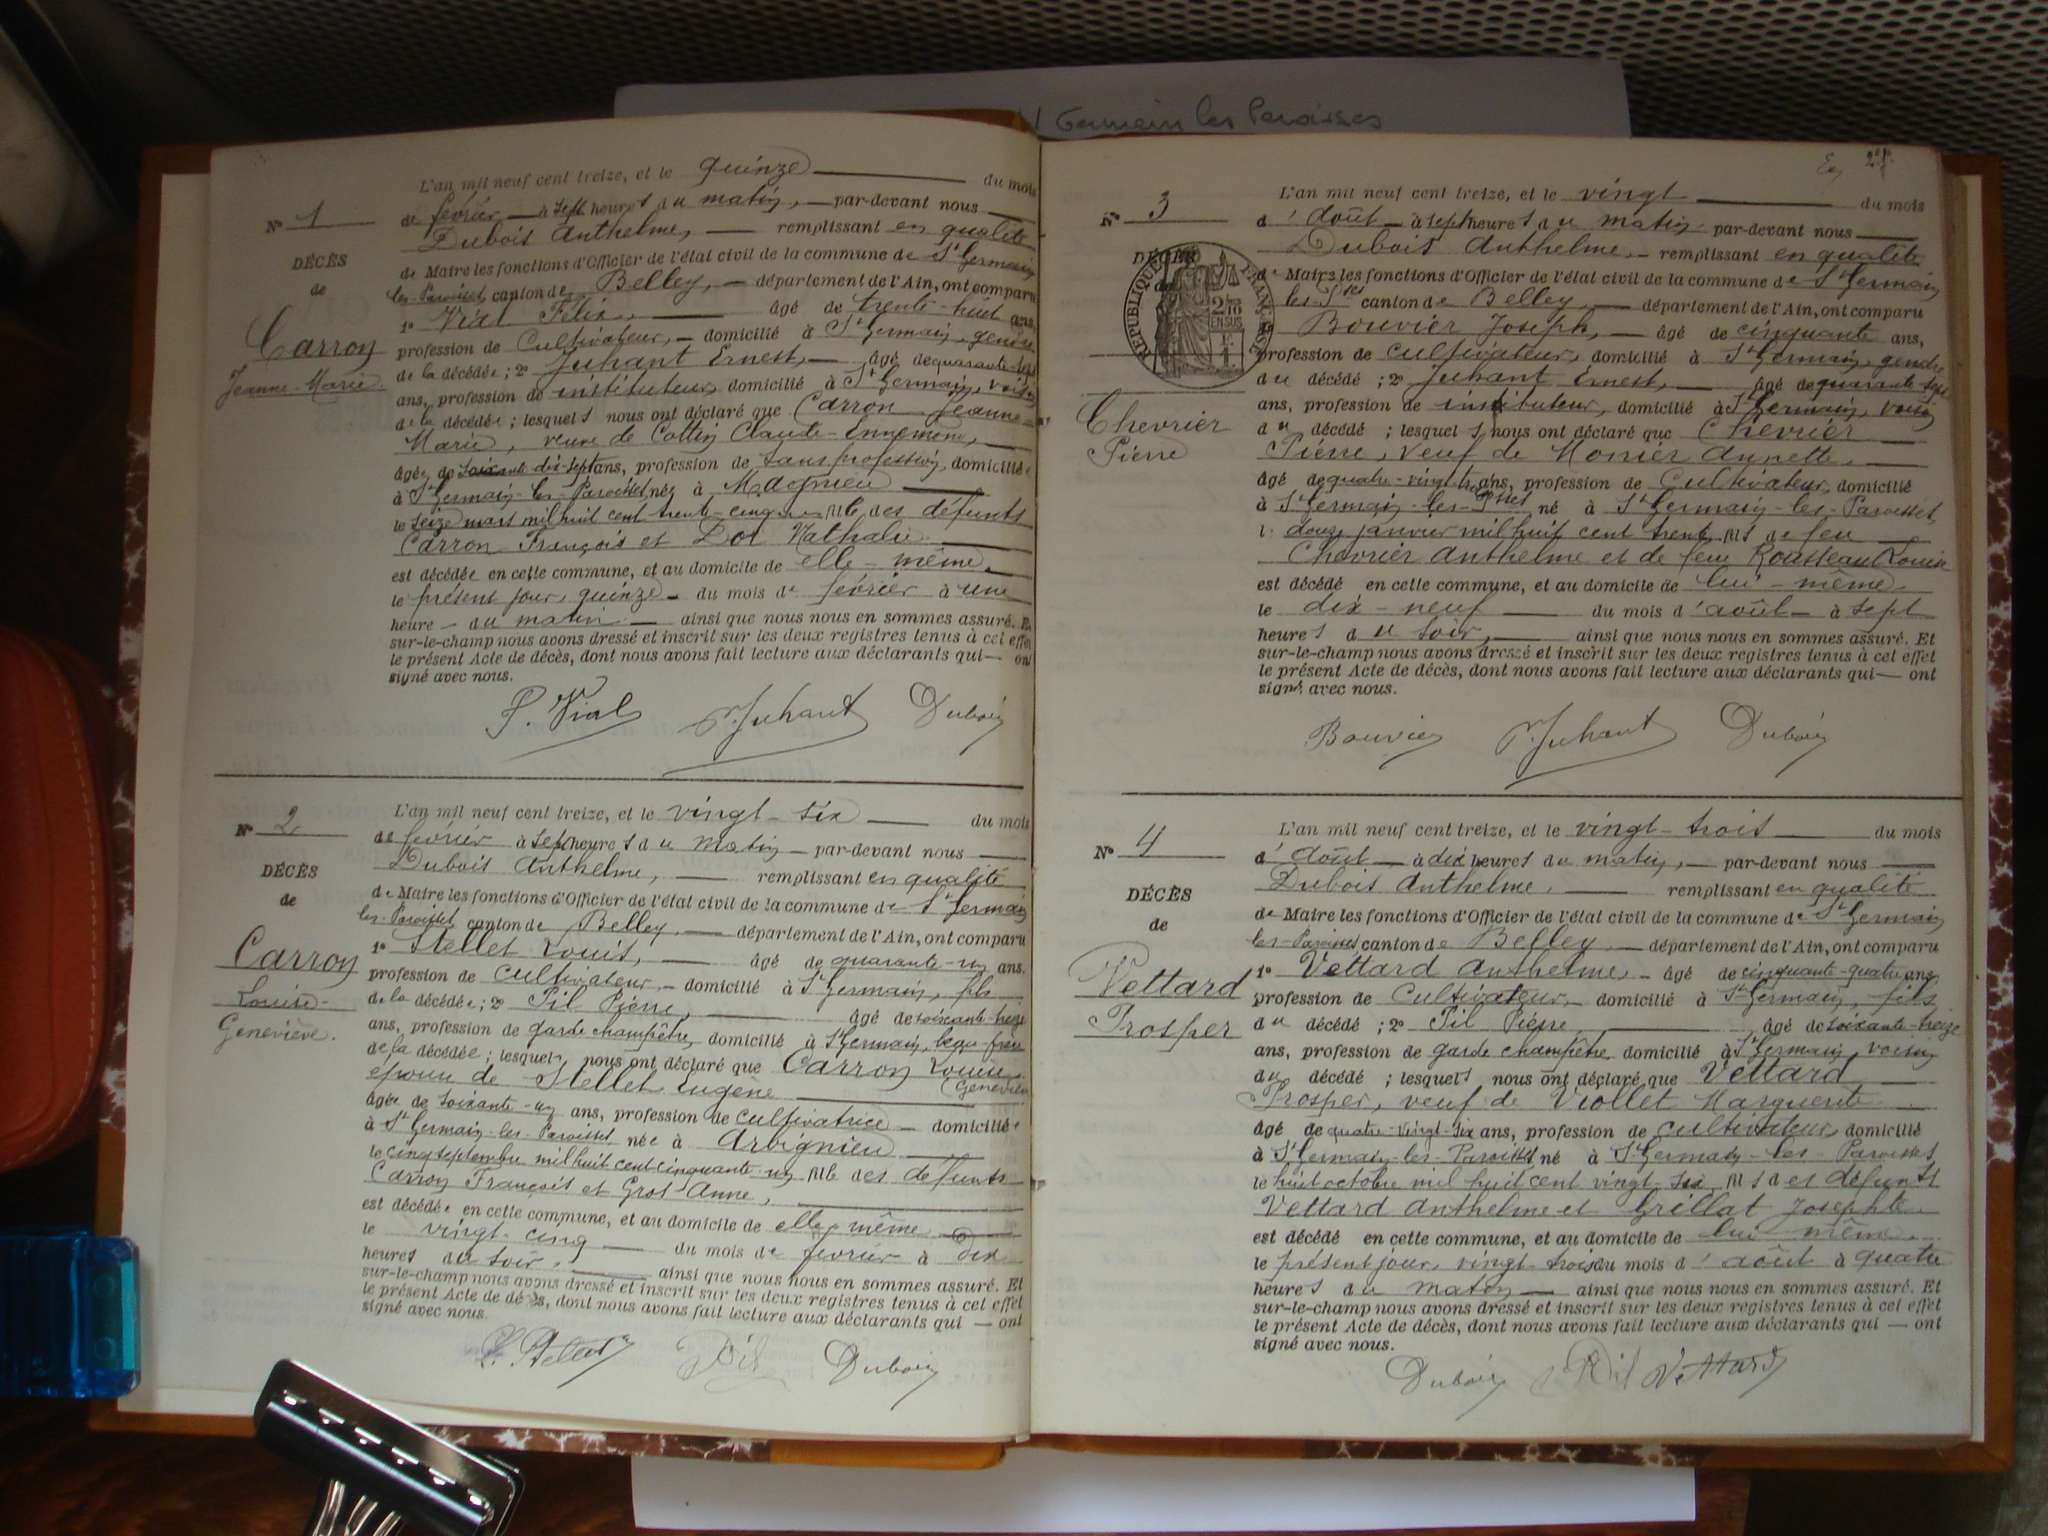 Germain les Paroisses
L'an mil neuf cent treize, et le quinze du mois
N° 1
de février à sept heures du matin, par-devant nous
Dubois Anthelme, remplissant en qualité
DÉCÈS
de Maire les fonctions d'Officier de l'état civil de la commune de St Germain
de
les-Paroisses canton de Belley, département de l'Ain, ont comparu
1° Vial Félix, âgé de trente-huit ans,
Carron
profession de Cultivateur, domicilié à St Germain, gendre
de la décédée ; 2° Juhant Ernest, âgé de quarante-sept
Jeanne-Marie.
ans, profession de instituteur, domicilié à St Germain, voisin
de la décédée ; lesquels nous ont déclaré que Carron Jeanne-
Marie, veuve de Cottin Claude-Ennemond,
âgée de soixante dix-sept ans, profession de sans profession, domiciliée
à St Germain-les-Paroisses née à Magnieu
le seize mars mil huit cent trente-cinq fille des défunts
Carron François et Dor Nathalie
est décédée en cette commune, et au domicile de elle-même
le présent jour, quinze du mois de février à une
heure du matin ainsi que nous nous en sommes assuré. Et
sur-le-champ nous avons dressé et inscrit sur les deux registres tenus à cet effet
le présent Acte de décès, dont nous avons fait lecture aux déclarants qui ont
signé avec nous.
F. Vial Juhant Dubois
L'an mil neuf cent treize, et le vingt-six du mois
N° 2
de février à sept heures du matin par-devant nous
Dubois Anthelme, remplissant en qualité
DÉCÈS
de Maire les fonctions d'Officier de l'état civil de la commune de St Germain
de
les-Paroisses canton de Belley, département de l'Ain, ont comparu
1° Stellet Louis, âgé de quarante-un ans.
Carron
profession de cultivateur, domicilié à St Germain, fils
Louise-
de la décédée ; 2° Pil Pierre, âgé de soixante-treize
Geneviève.
ans, profession de garde champêtre, domicilié à St Germain, beau-frère
de la décédée ; lesquels nous ont déclaré que Carron Louise
Geneviève
épouse de Stellet Eugène
âgée de soixante-un ans, profession de cultivatrice domiciliée
à St Germain-les-Paroisses née à Arbignieu
le cinq septembre mil huit cent cinquante-un fille des défunts
Carron François et Grot Anne,
est décédée en cette commune, et au domicile de elle-même
le vingt-cinq du mois de février à dix
heures du soir, ainsi que nous nous en sommes assuré. Et
sur-le-champ nous avons dressé et inscrit sur les deux registres tenus à cet effet
le présent Acte de décès, dont nous avons fait lecture aux déclarants qui ont
signé avec nous.
Pil Dubois
L'an mil neuf cent treize, et le vingt du mois
N° 3
d'août à sept heures du matin par-devant nous
Dubois Anthelme, remplissant en qualité
DÉCÈS
de Maire les fonctions d'Officier de l'état civil de la commune de St Germain
les-Pses canton de Belley, département de l'Ain, ont comparu
RÉPUBLIQUE FRANÇAISE
2/10 EN SUS
1° Bouvier Joseph, âgé de cinquante ans,
profession de cultivateur, domicilié à St Germain, gendre
du décédé ; 2° Juhant Ernest, âgé de quarante-sept
ans, profession de instituteur, domicilié à St Germain, voisin
Chevrier
du décédé ; lesquels nous ont déclaré que Chevrier
Pierre
Pierre, veuf de Monier Annette
âgé de quatre-vingt trois ans, profession de Cultivateur, domicilié
à St Germain-les-Pses né à St Germain-les-Paroisses
le douze janvier mil huit cent trente fils de feu
Chevrier Anthelme et de feue Rousseau Louise
est décédé en cette commune, et au domicile de lui-même,
le dix-neuf du mois d'août à sept
heures du soir, ainsi que nous nous en sommes assuré. Et
sur-le-champ nous avons dressé et inscrit sur les deux registres tenus à cet effet
le présent Acte de décès, dont nous avons fait lecture aux déclarants qui ont
signé avec nous.
Bouvier Juhant Dubois
L'an mil neuf cent treize, et le vingt-trois du mois
N° 4
d'août à dix heures du matin, par-devant nous
Dubois Anthelme, remplissant en qualité
DÉCÈS
de Maire les fonctions d'Officier de l'état civil de la commune de St Germain
de
les-Paroisses canton de Belley département de l'Ain, ont comparu
1° Vettard Anthelme âgé de cinquante-quatre ans,
Vettard
profession de Cultivateur, domicilié à St Germain, fils
Prosper
du décédé ; 2° Pil Pierre, âgé de soixante-treize
ans, profession de garde champêtre domicilié à St Germain, voisin
du décédé ; lesquels nous ont déclaré que Vettard
Prosper, veuf de Viollet Marguerite
âgé de quatre-vingt-six ans, profession de cultivateur, domicilié
à St Germain-les-Paroisses né à St Germain-les-Paroisses
le huit octobre mil huit cent vingt-six fils des défunts
Vettard Anthelme et Grillat Josephte
est décédé en cette commune, et au domicile de lui-même
le présent jour, vingt-trois du mois d'août à quatre
heures du matin ainsi que nous nous en sommes assuré. Et
sur-le-champ nous avons dressé et inscrit sur les deux registres tenus à cet effet
le présent Acte de décès, dont nous avons fait lecture aux déclarants qui ont
signé avec nous.
Dubois Pil Vettard